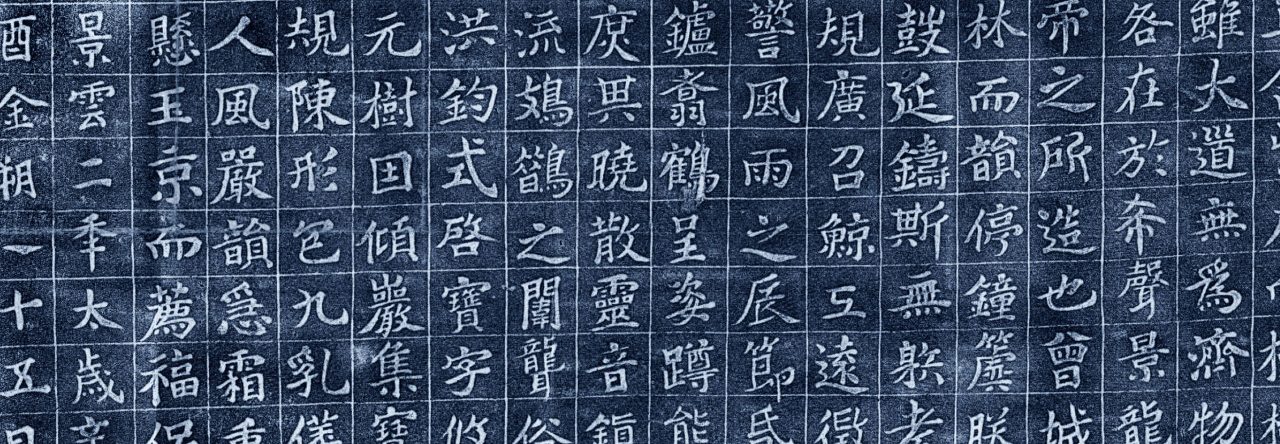 雖大道無為濟物
各在於希聲景龍
帝之所造也曾城
林而韻停鐘簴朕
鼓延鑄斯無躬老
規廣召鯨工遠徵
警風雨之辰節昏
鑪翥鶴呈姿蹲熊
庾畀曉散靈音鎮
流鴂鶻之闡聾俗
洪鈞式啓寶字攸
元樹田傾巖集寶
規陳形包九乳儀
人風嚴韻急霜重
懸玉京而薦福保
景雲二年太歲辛
酉金朔一十五日